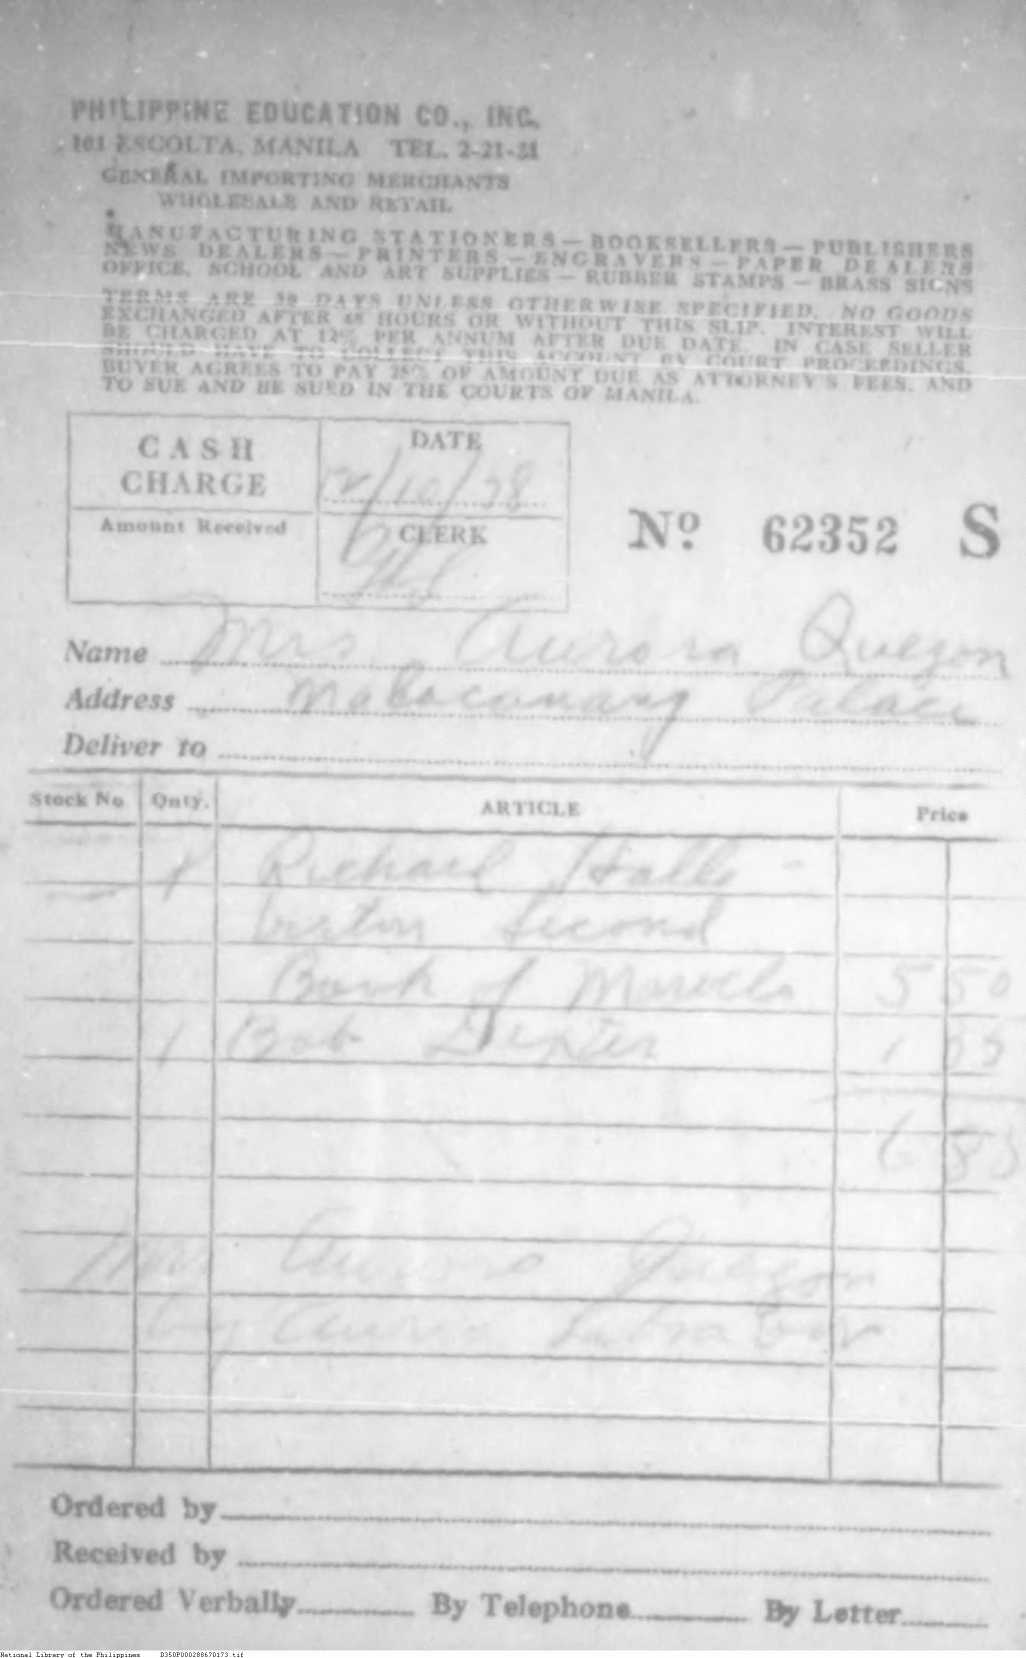 PHILIPPINE EDUCATION CO., INC.
101 ESCOLTA, MANILA TEL. 2-21-31
GENERAL IMPORTING MERCHANTS
WHOLESALE AND RETAIL
MANUFACTURING STATIONERS — BOOKSELLERS — PUBLISHERS
NEWS DEALERS — PRINTERS — ENGRAVERS — PAPER DEALERS
OFFICE, SCHOOL AND ART SUPPLIES — RUBBER STAMPS — BRASS SIGNS
TERMS ARE 30 DAYS UNLESS OTHERWISE SPECIFIED. NO GOODS
EXCHANGED AFTER 48 HOURS OR WITHOUT THIS SLIP. INTEREST WILL
BE CHARGED AT 12% PER ANNUM AFTER DUE DATE. IN CASE SELLER
SHOULD HAVE TO COLLECT THIS ACCOUNT BY COURT PROCEEDINGS,
BUYER AGREES TO PAY 25% OF AMOUNT DUE AS ATTORNEY'S FEES, AND
TO SUE AND BE SUED IN THE COURTS OF MANILA.
CASH
CHARGE
DATE
12/10/38
Amount Received
CLERK
Nº 62352 S
Name Mrs. Aurora Quezon
Address Malacanang Palace
Deliver to
Stock No Qnty. ARTICLE Price
1 Richard Halli-
burton Second
Book of Marvels 5 50
1 Bob Dexter 1 35
6 85
Mrs Aurora Quezon
by
Ordered by
Received by
Ordered Verbally By Telephone By Letter
National Library of the Philippines D350P000288670173.tif